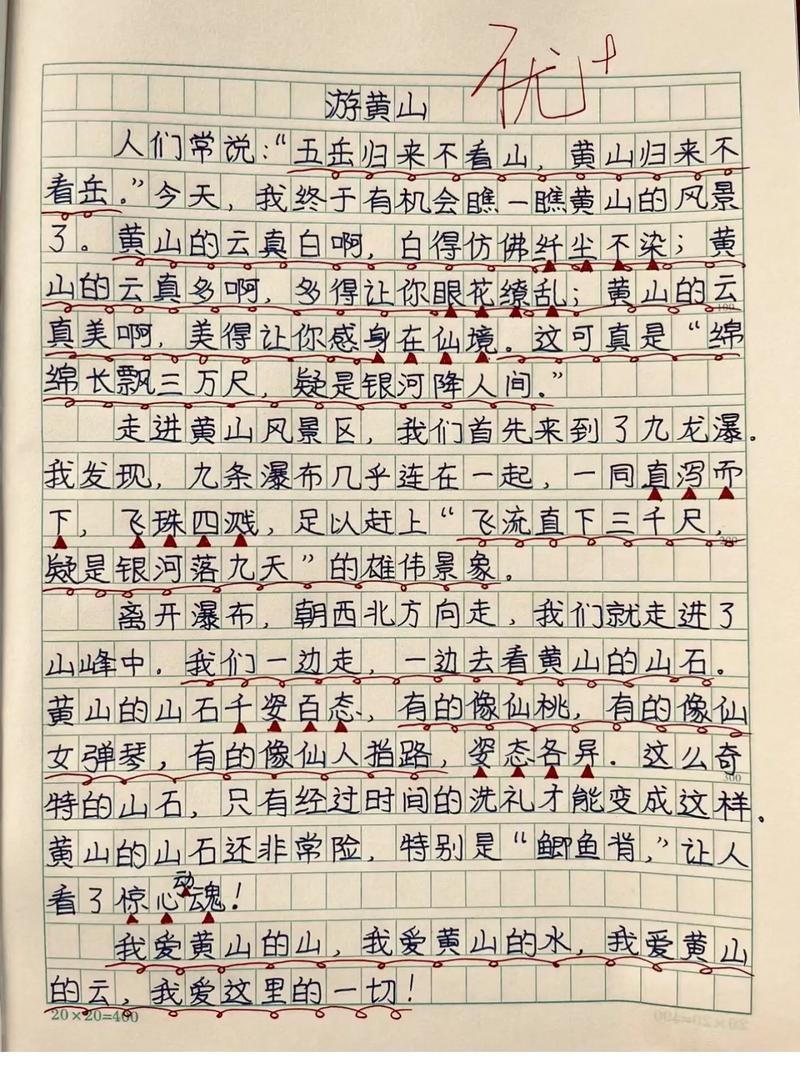 优+
游黄山
人们常说：“五岳归来不看山，黄山归来不
看岳。”今天，我终于有机会瞧一瞧黄山的风景
了。黄山的云真白啊，白得仿佛纤尘不染；黄
山的云真多啊，多得让你眼花缭乱；黄山的云
100
真美啊，美得让你感身在仙境。这可真是“绵
绵长飘三万尺，疑是银河降人间。”
走进黄山风景区，我们首先来到了九龙瀑。
我发现，九条瀑布几乎连在一起，一同直泻而
下，飞珠四溅，足以赶上“飞流直下三千尺，
200
疑是银河落九天”的雄伟景象。
离开瀑布，朝西北方向走，我们就走进了
山峰中。我们一边走，一边去看黄山的山石。
黄山的山石千姿百态、有的像仙桃，有的像仙
女弹琴，有的像仙人指路，姿态各异。这么奇
300
特的山石，只有经过时间的洗礼才能变成这样。
黄山的山石还非常险，特别是“鲫鱼背，”让人
看了惊心动魂！
我爱黄山的山，我爱黄山的水，我爱黄山
的云，我爱这里的一切！
20×20=400